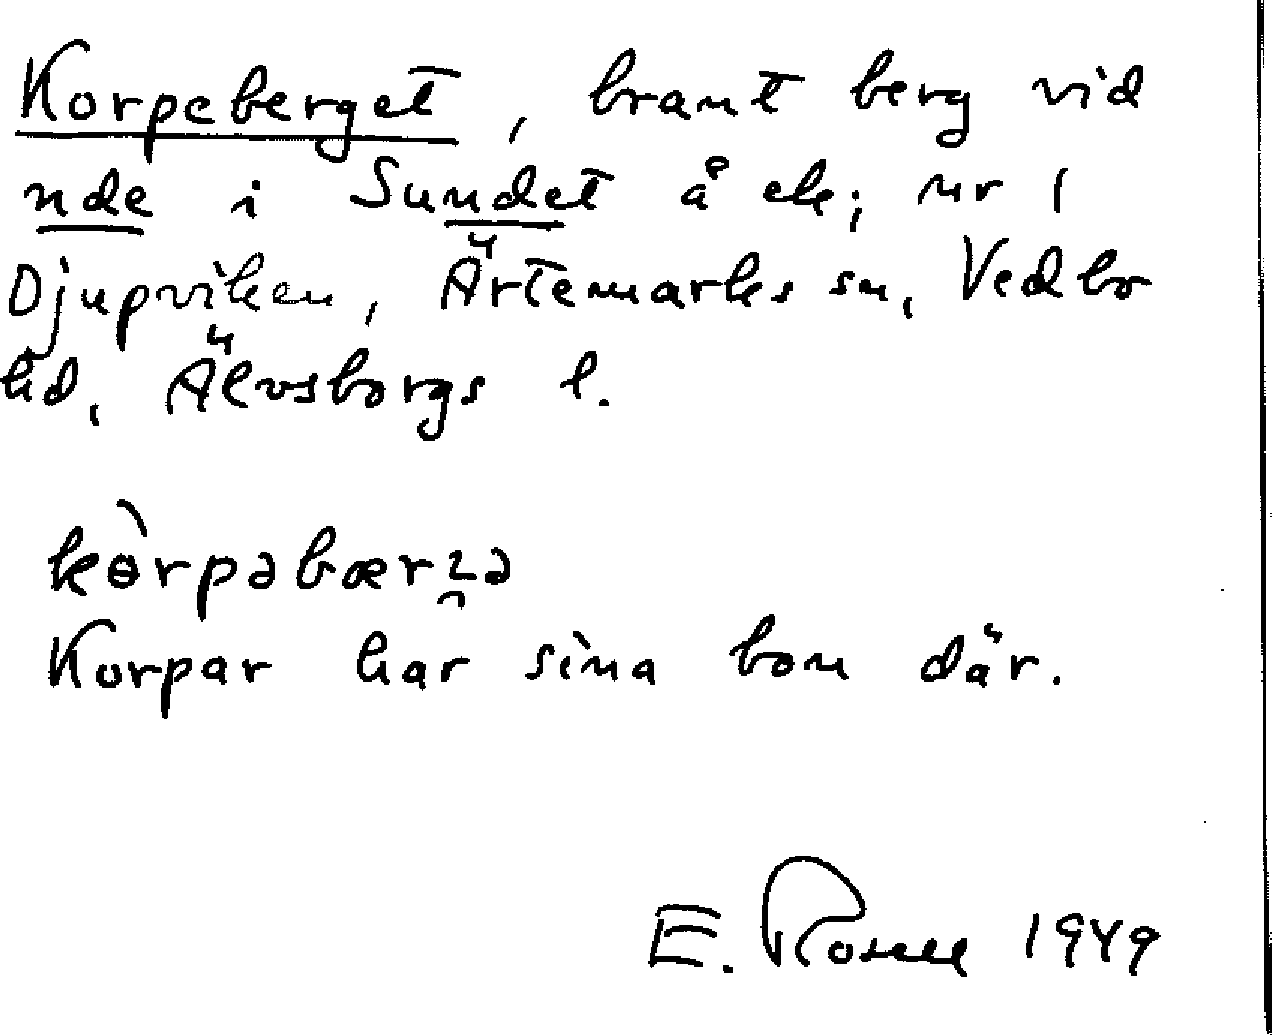 Korpeberget, brant berg vid
nde i Sundet å ek; nr 1
Djupviken, Ärtemarks sn, Vedbo
hd, Älvsborgs l.
kɵ̀rpəbærʓə
Korpar har sina bon där.
E. Rosell 1949